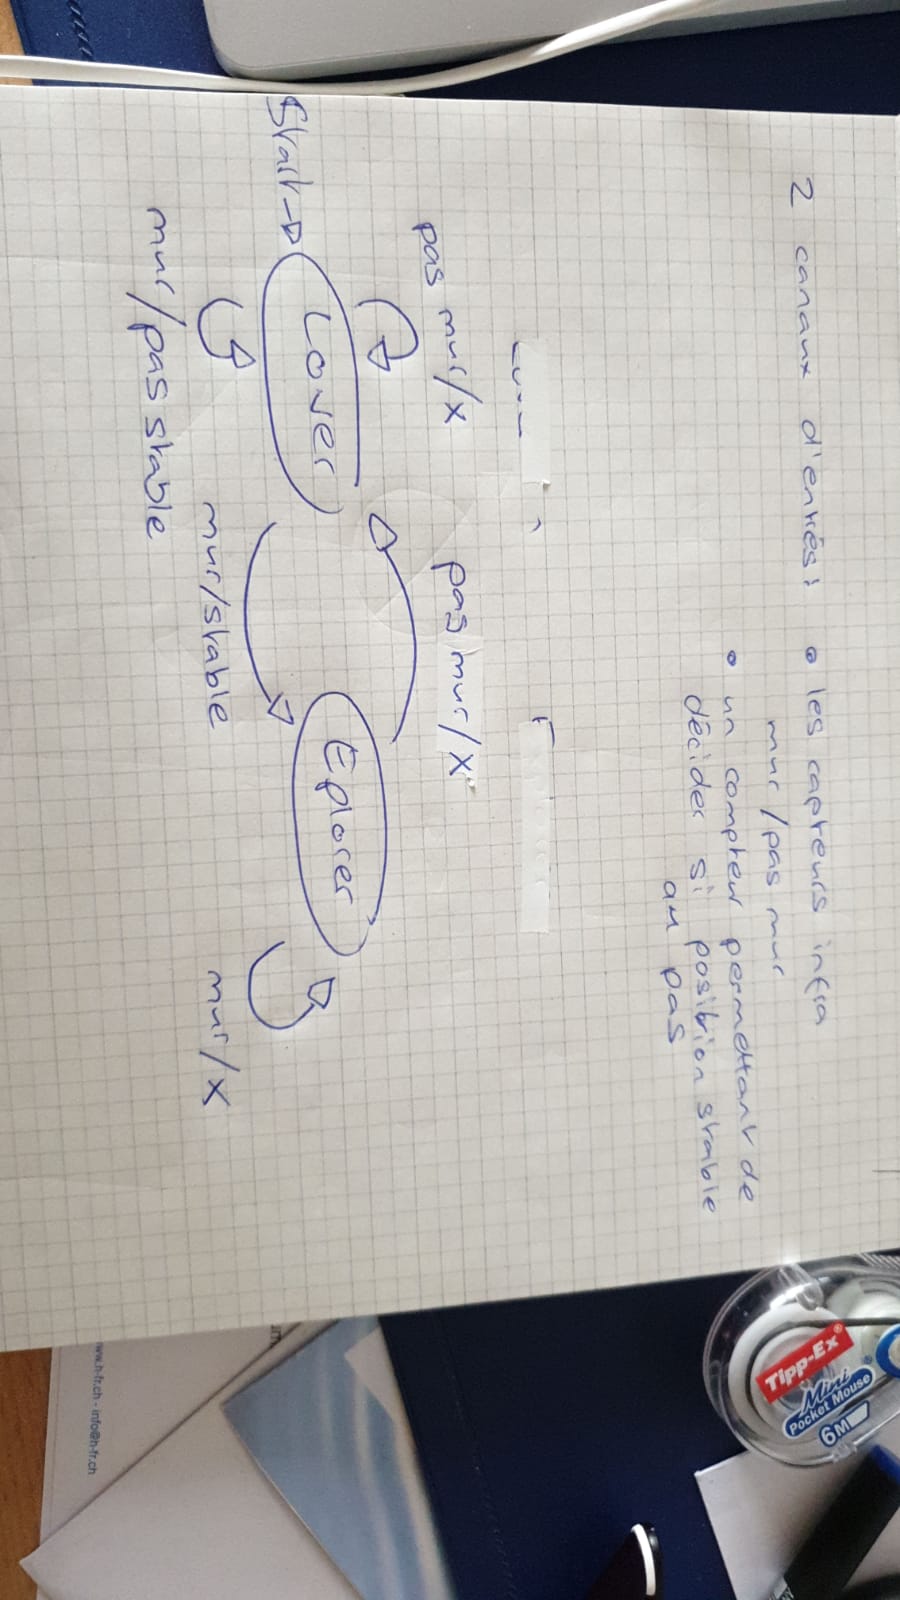 2 canaux d'entrés: • les capteurs infra
mur/pas mur
• un compteur permettant de
décider si position stable
au pas
pas mur/x
pas mur/x
Start
Lover
Eplorer
mur/stable
mur/x
mur/pas stable
Tipp-Ex
Pocket Mouse
6M
www.h-fr.ch - info@h-fr.ch